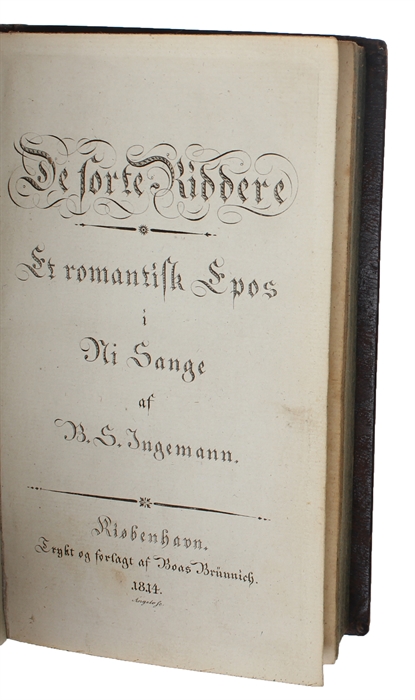 De sorte Riddere
Et romantisk Epos
i
Ni Sange
af
B. S. Ingemann.
Kiøbenhavn.
Trykt og forlagt af Boas Brünnich.
1814.
Angelo sc.